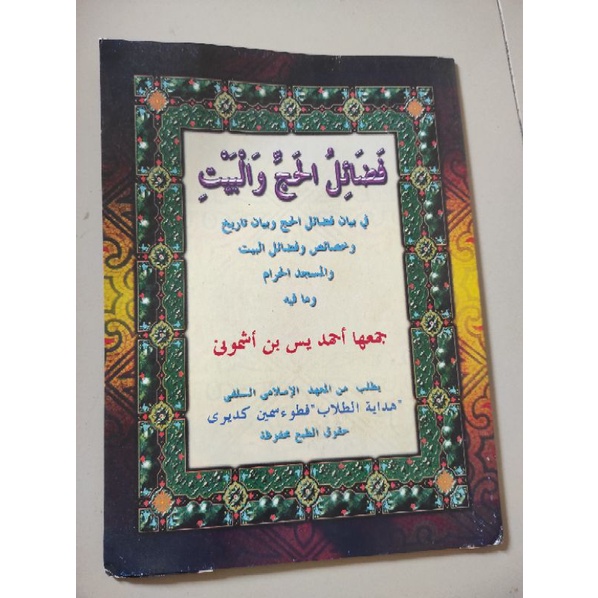 فَضَائِلُ الحَجِّ وَالْبَيْتِ
في بيان فضائل الحج وبيان تاريخ
وخصائص وفضائل البيت
والمسجد الحرام
وما فيه
جمعها أحمد يس بن أشمونى
يطلب من المعهد الإسلامى السلفى
"هداية الطلاب" فطوءسمين كديرى
حقوق الطبع محفوظة